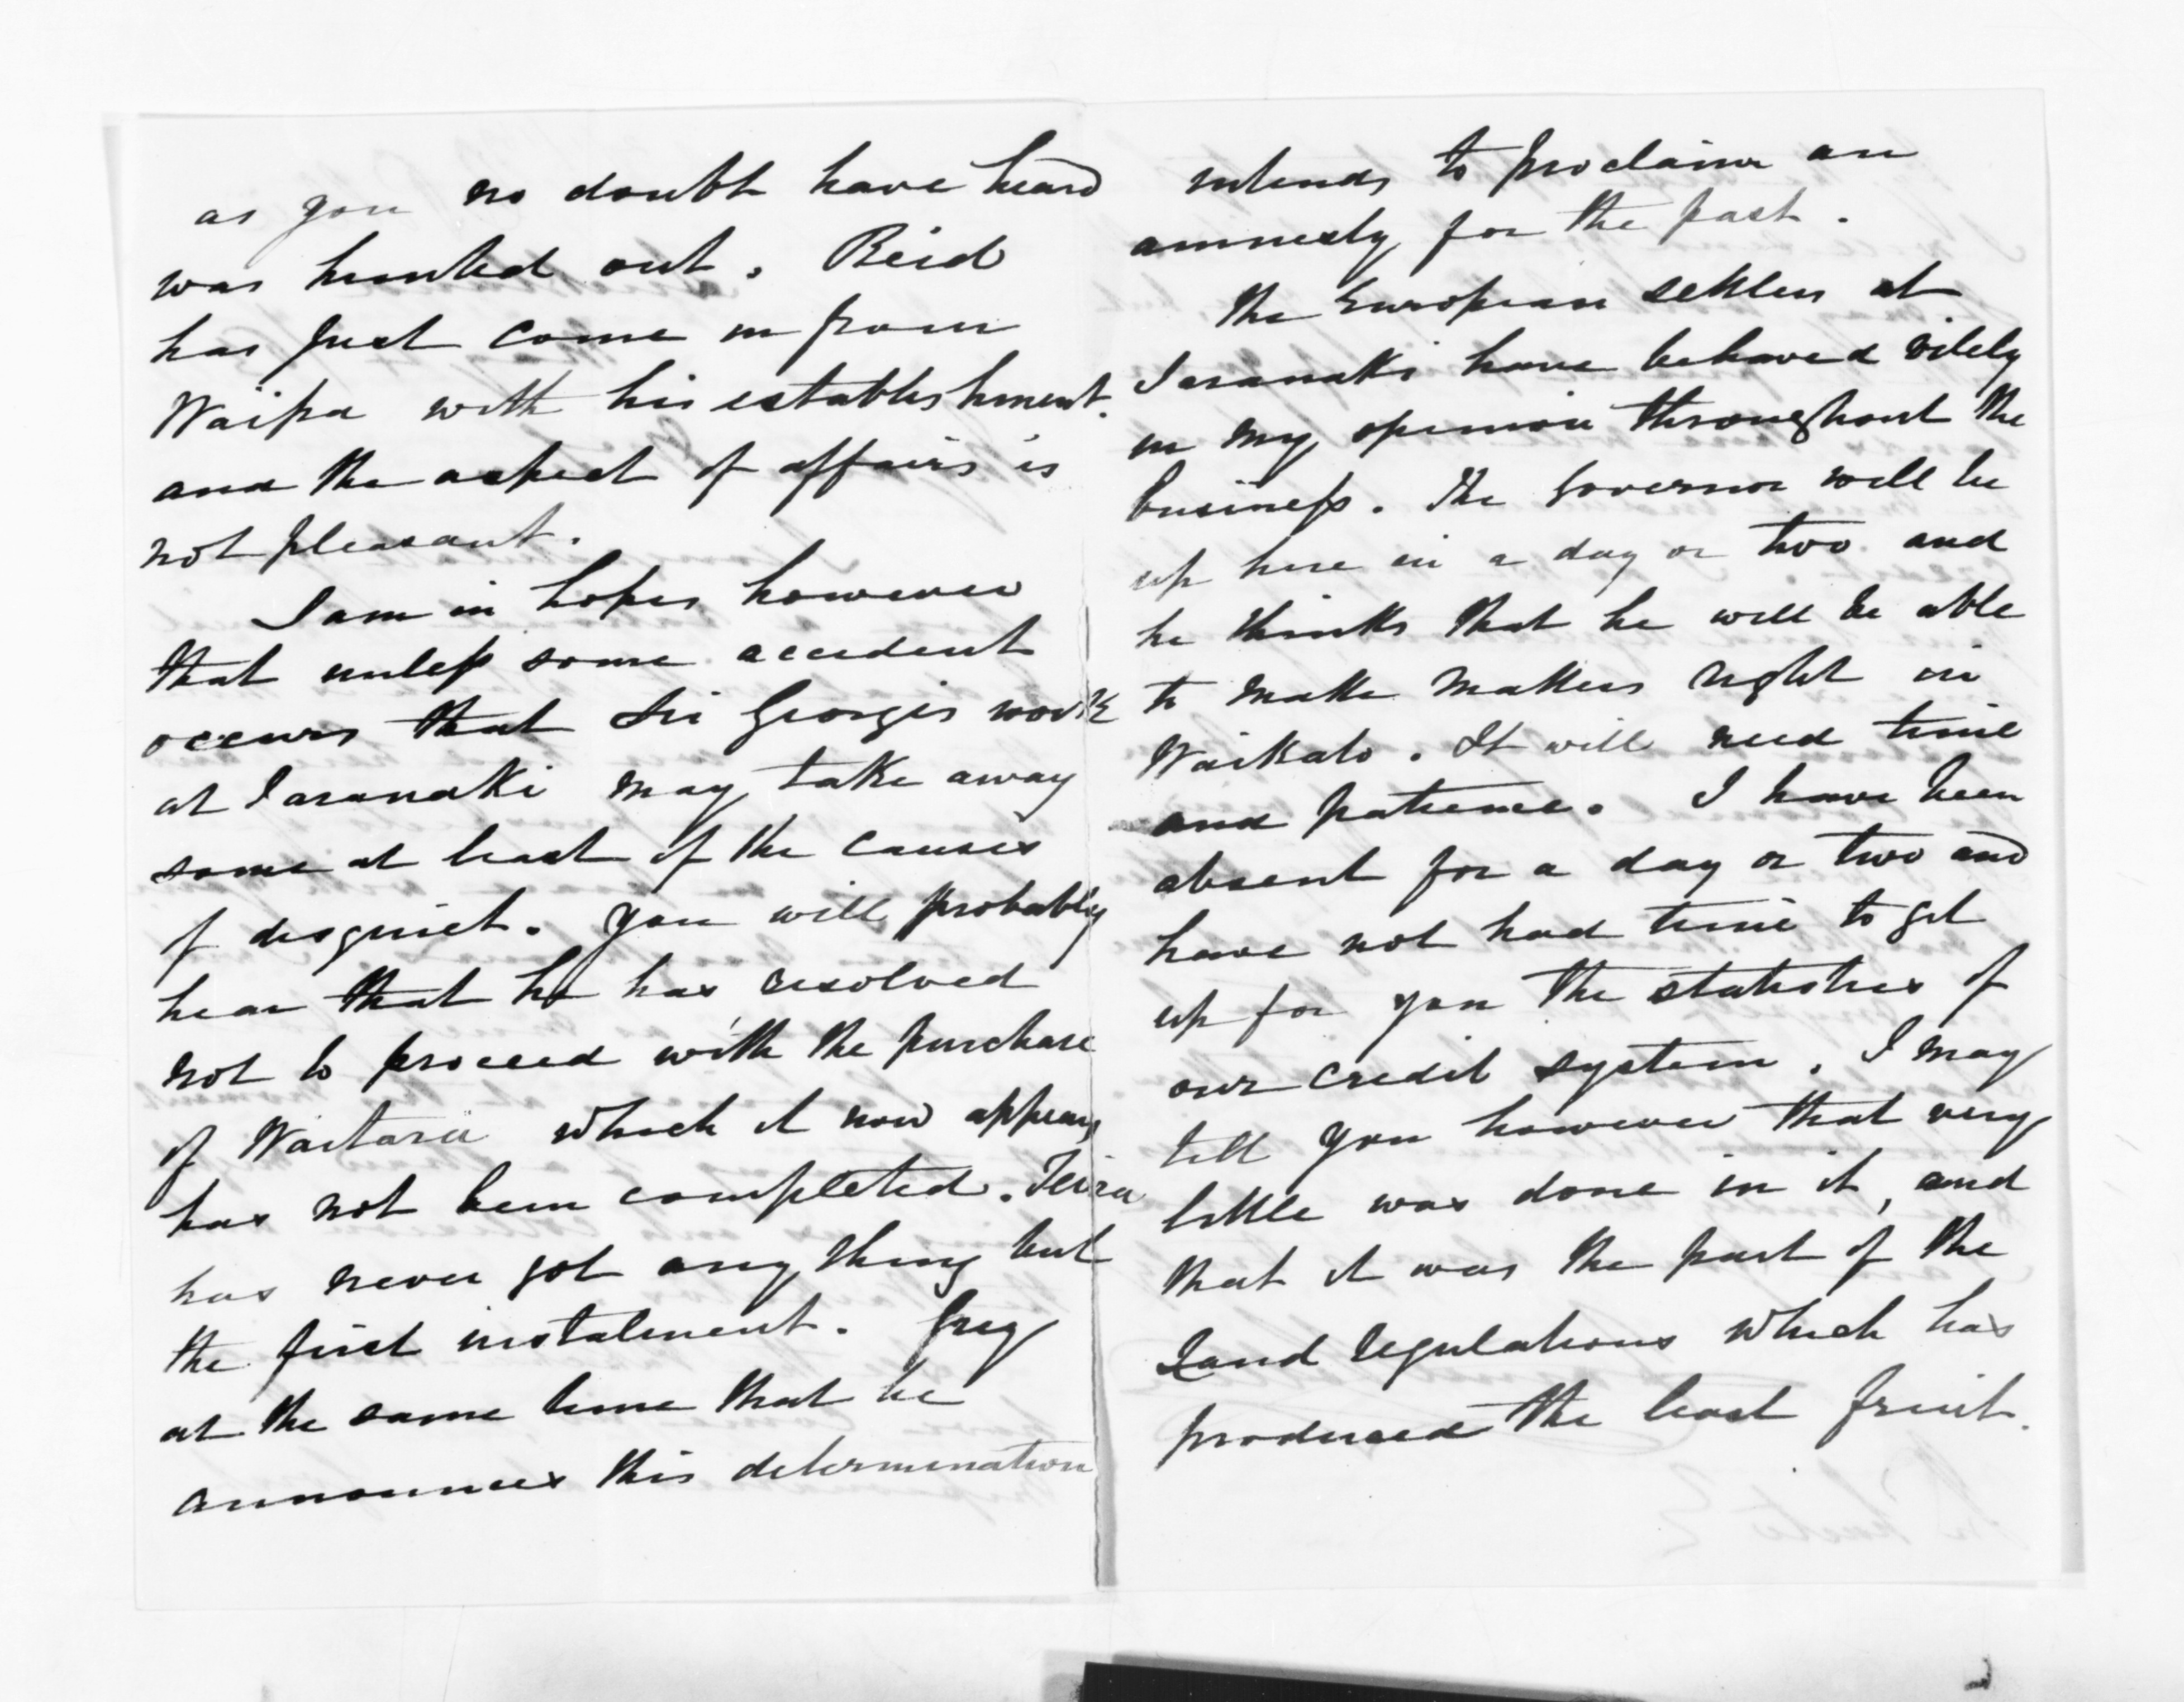 as you no doubt have heard
was hunted out. Reid
has just come in from
Waipa with his establishment.
and the aspect of affairs is
not pleasant.
I am in hopes however
that unless some accident
occurs that Sir Georges work
at Taranaki may take away
some at least of the causes
of disquiet. You will probably
hear that he has resolved
not to proceed with the purchase
of Waitara which it now appears
has not been completed. Teira
has never got any thing but
the first instalment. Grey
at the same time that he
announces this determination
intends to proclaim an
amnesty for the past.
The European settlers at
Taranaki have behaved vilely
in my opinion throughout the
business. The Governor will be
up here in a day or two and
he thinks that he will be able
to make matters right in
Waikato. It will need time
and patience. I have been
absent for a day or two and
have not had time to get
up for you the statistics of
our credit system. I may
tell you however that very
little was done in it, and
that it was the part of the
Land regulations which has
produced the least fruit.